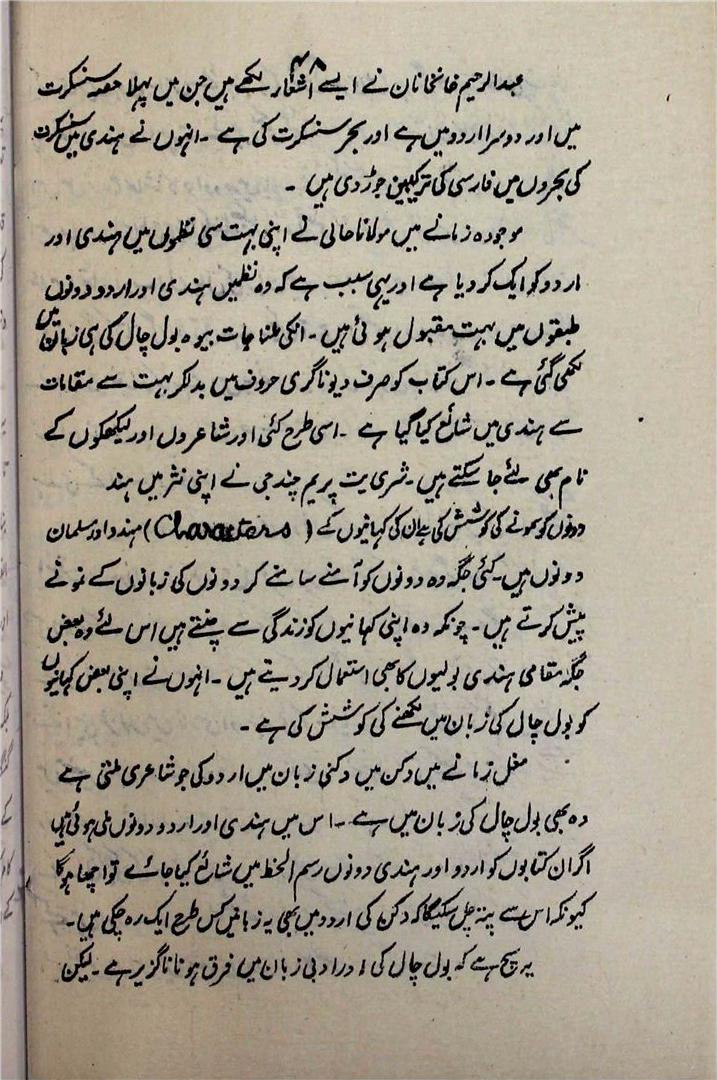 ۴۸
عبدالرحیم خانخانان نے ایسے اشعار لکھے ہیں جن میں پہلا حصہ سنسکرت
میں اور دوسرا اردو میں ہے اور بحر سنسکرت کی ہے ۔ انہوں نے ہندی میں سنسکرت
کی بحروں میں فارسی کی ترکیبیں جوڑ دی ہیں ۔
موجودہ زمانے میں مولانا حالی نے اپنی بہت سی نظموں میں ہندی اور
اردو کو ایک کر دیا ہے اور یہی سبب ہے کہ وہ نظمیں ہندی اور اردو دونوں
طبقوں میں بہت مقبول ہوئی ہیں ۔ انکی مناجات بیوہ بول چال کی ہی زبان میں
لکھی گئی ہے ۔ اس کتاب کو صرف دیوناگری حروف میں بدلکر بہت سے مقامات
سے ہندی میں شائع کیا گیا ہے ۔ اسی طرح کئی اور شاعروں اور لیکھکوں کے
نام بھی لئے جا سکتے ہیں ۔ شری یت پریم چند جی نے اپنی نثر میں ہند
دونوں کو سمونے کی کوشش کی ہے ان کی کہانیوں کے (Characters) ہندو اور مسلمان
دونوں ہیں ۔ کئی جگہ وہ دونوں کو آمنے سامنے کر دونوں کی زبانوں کے نمونے
پیش کرتے ہیں ۔ چونکہ وہ اپنی کہانیوں کو زندگی سے چنتے ہیں اس لئے وہ بعض
جگہ مقامی ہندی بولیوں کا بھی استعمال کر دیتے ہیں ۔ انہوں نے اپنی بعض کہانیوں
کو بول چال کی زبان میں لکھنے کی کوشش کی ہے ۔
مغل زمانے میں دکن میں دکنی زبان میں اردو کی جو شاعری ملتی ہے
وہ بھی بول چال کی زبان میں ہے ۔ اس میں ہندی اور اردو دونوں ملی ہوئی ہیں
اگر ان کتابوں کو اردو اور ہندی دونوں رسم الخط میں شائع کیا جائے تو اچھا ہوگا
کیونکہ اس سے پتہ چل سکیگا کہ دکن کی اردو میں بھی یہ زبانیں کس طرح ایک رہ چکی ہیں ۔
یہ سچ ہے کہ بول چال کی اور ادبی زبان میں فرق ہونا ناگزیر ہے ۔ لیکن